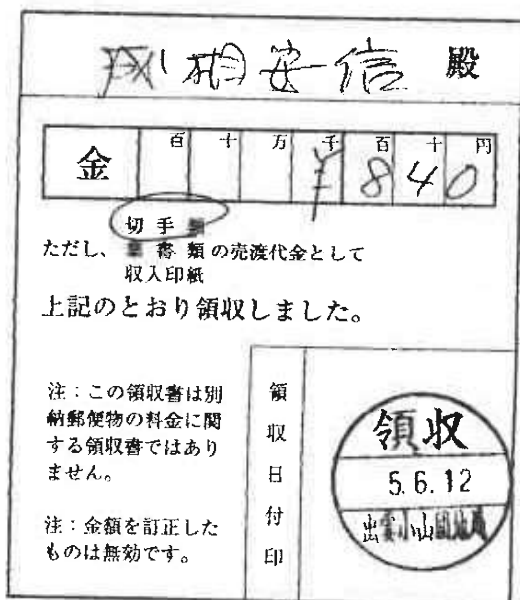 相安信 殿
金 百 十 万 千 百 十 円
¥ 8 4 0
切手
ただし、 書類の売渡代金として
収入印紙
上記のとおり領収しました。
注：この領収書は別
納郵便物の料金に関
する領収書ではあり
ません。
注：金額を訂正した
ものは無効です。
領収日付印
領収
5.6.12
出雲小山団地局